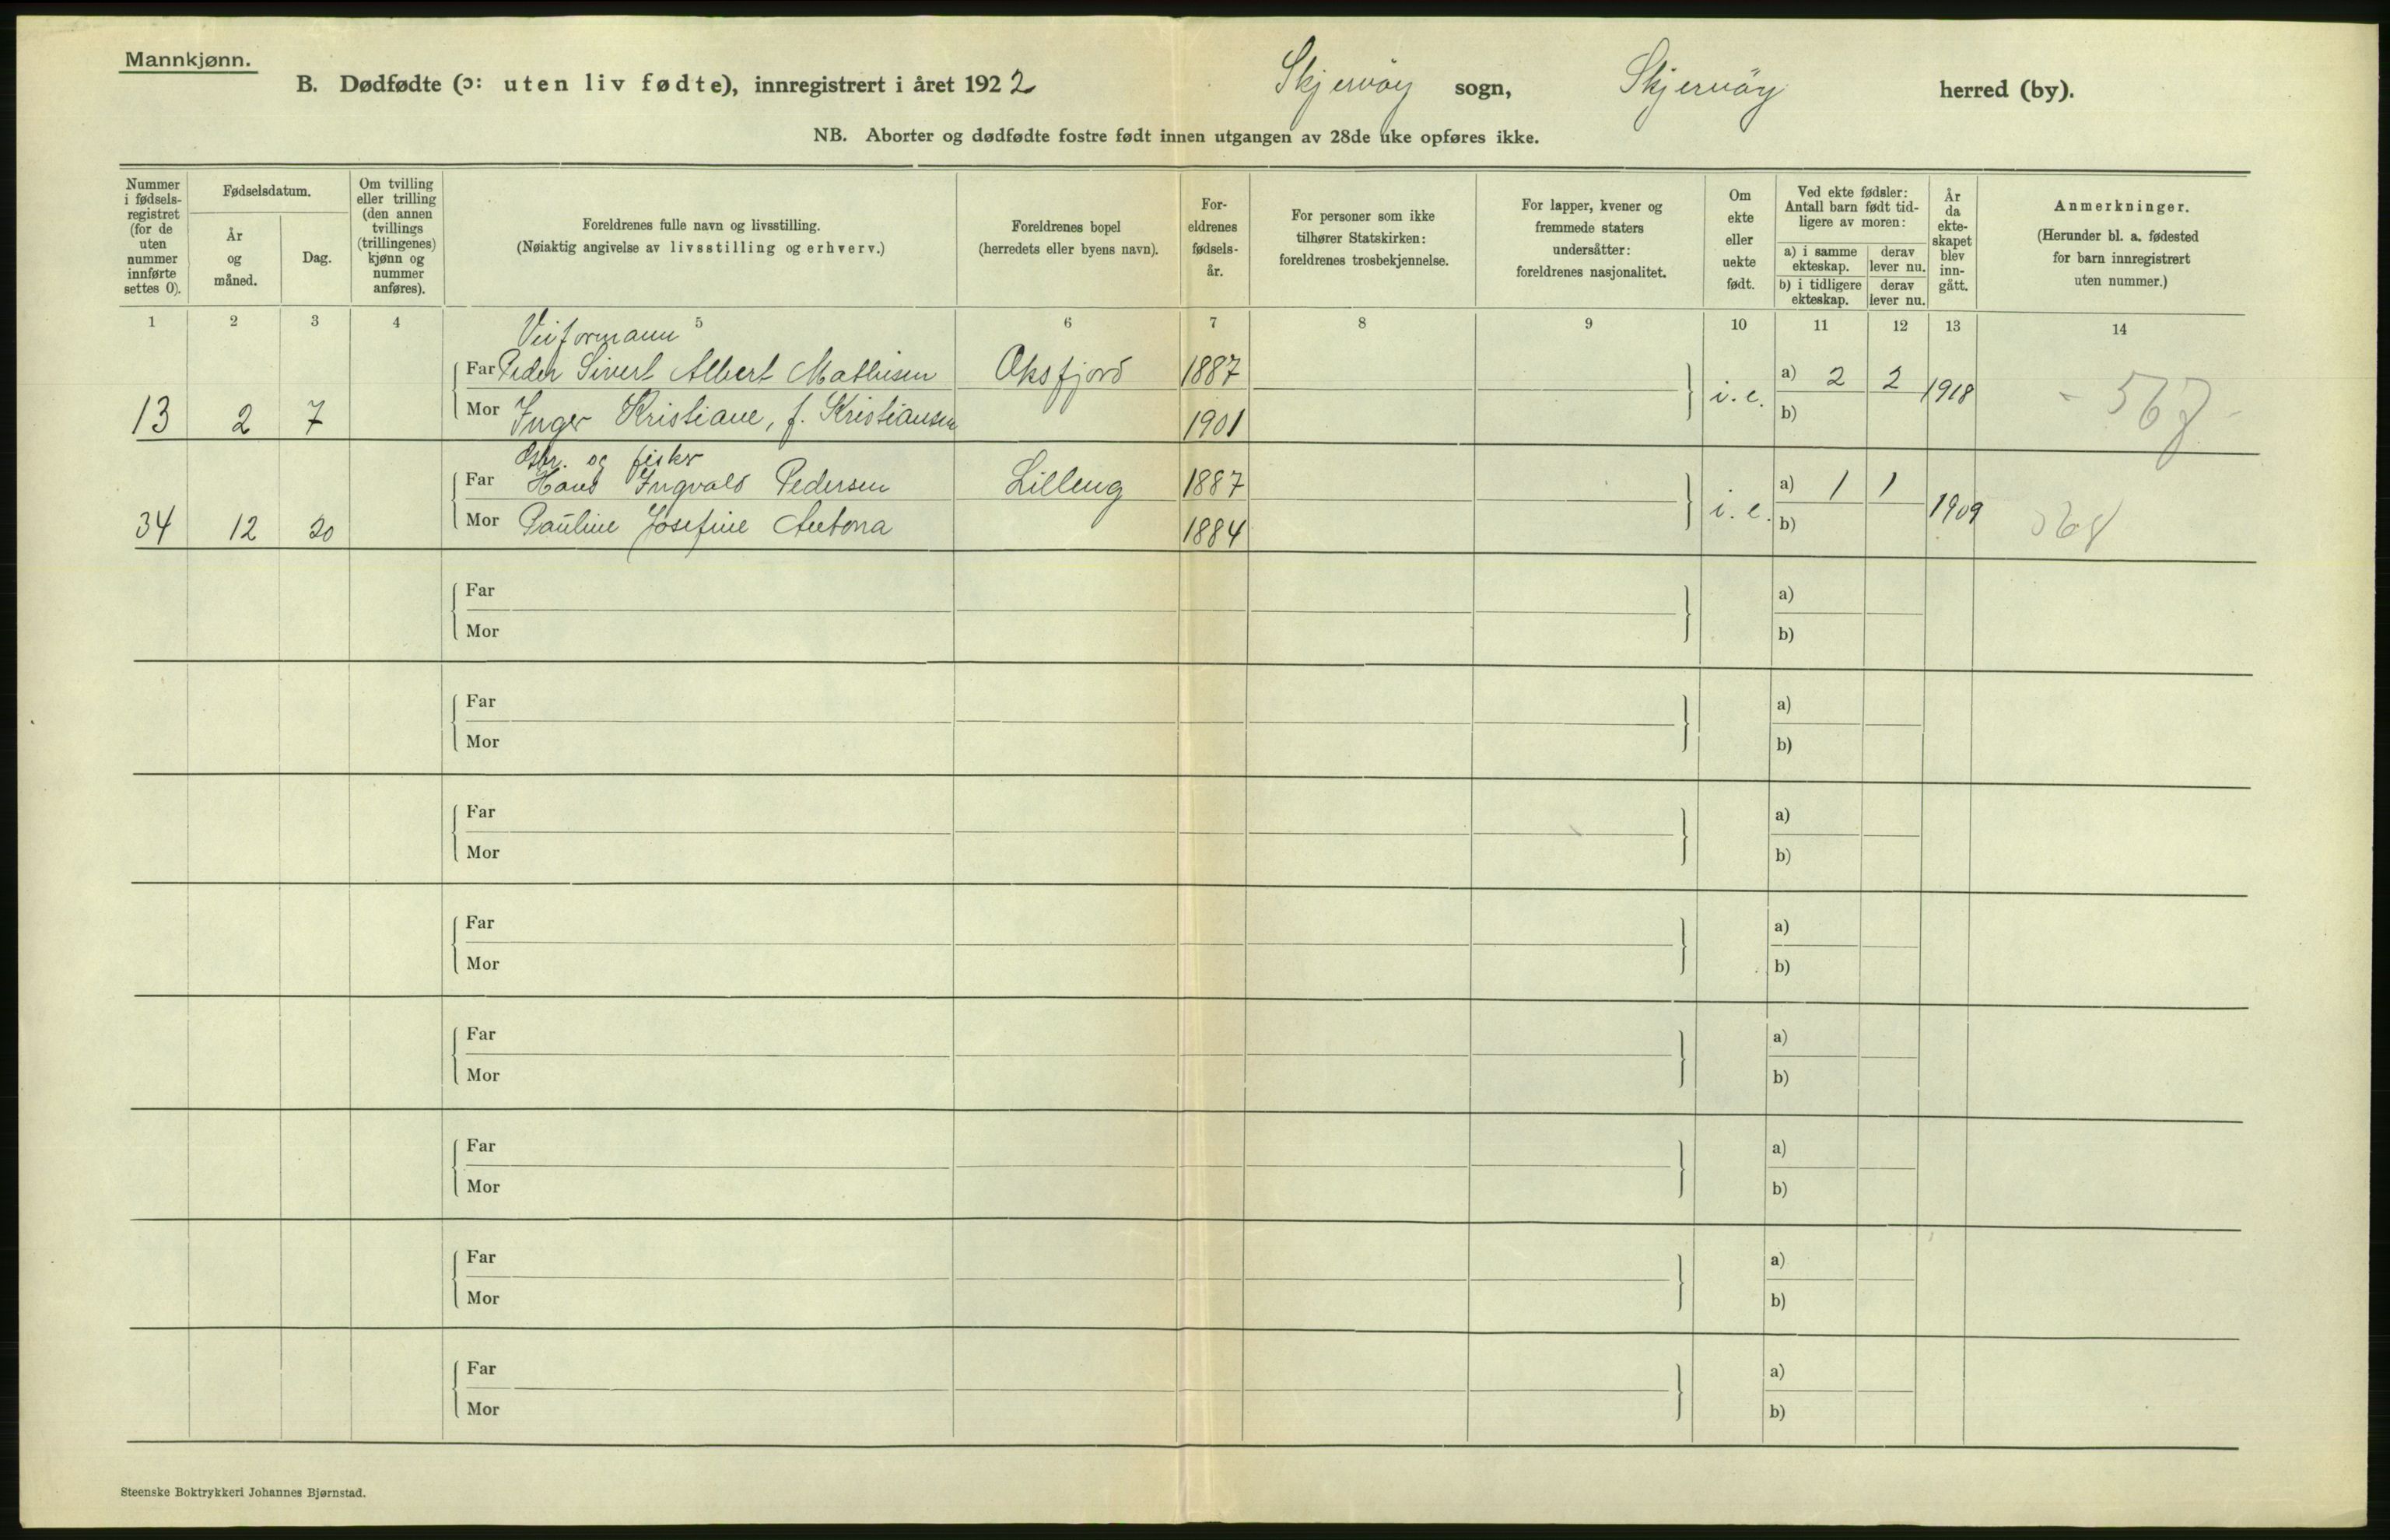 Mannkjønn.
B. Dødfødte (ɔ: uten liv fødte), innregistrert i året 1922 Skjervöy sogn, Skjervöy herred (by).
NB. Aborter og dødfødte fostre født innen utgangen av 28de uke opføres ikke.
Nummer i fødsels-registret (for de uten nummer innførte settes 0).
Fødselsdatum.
År og måned.
Dag.
Om tvilling eller trilling (den annen tvillings (trillingenes) kjønn og nummer anføres).
Foreldrenes fulle navn og livsstilling.
(Nøiaktig angivelse av livsstilling og erhverv.)
Foreldrenes bopel
(herredets eller byens navn).
For-eldrenes fødsels-år.
For personer som ikke tilhører Statskirken: foreldrenes trosbekjennelse.
For lapper, kvener og fremmede staters undersåtter: foreldrenes nasjonalitet.
Om ekte eller uekte født.
Ved ekte fødsler:
Antall barn født tid-ligere av moren:
a) i samme ekteskap. derav lever nu.
b) i tidligere ekteskap. derav lever nu.
År da ekte-skapet blev inn-gått.
Anmerkninger.
(Herunder bl. a. fødested for barn innregistrert uten nummer.)
1 2 3 4 5 6 7 8 9 10 11 12 13 14
Veiformann
Far Peder Sivert Albert Mathisen Oksfjord 1887 a) 2 2
13 2 7 Mor Inger Kristiane, f. Kristiansen 1901 i. e. b) 1918 567
Gbr. og fisker
Far Hans Ingvald Pedersen Lilleng 1887 a) 1 1
34 12 20 Mor Pauline Josefine Antona 1884 i. e. b) 1909 568
Far a)
Mor b)
Far a)
Mor b)
Far a)
Mor b)
Far a)
Mor b)
Far a)
Mor b)
Far a)
Mor b)
Far a)
Mor b)
Far a)
Mor b)
Steenske Boktrykkeri Johannes Bjørnstad.